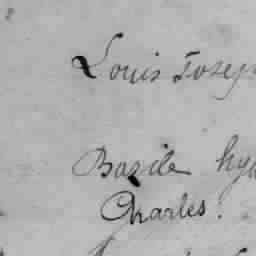 Louis Josep
Basile hya
Charles.